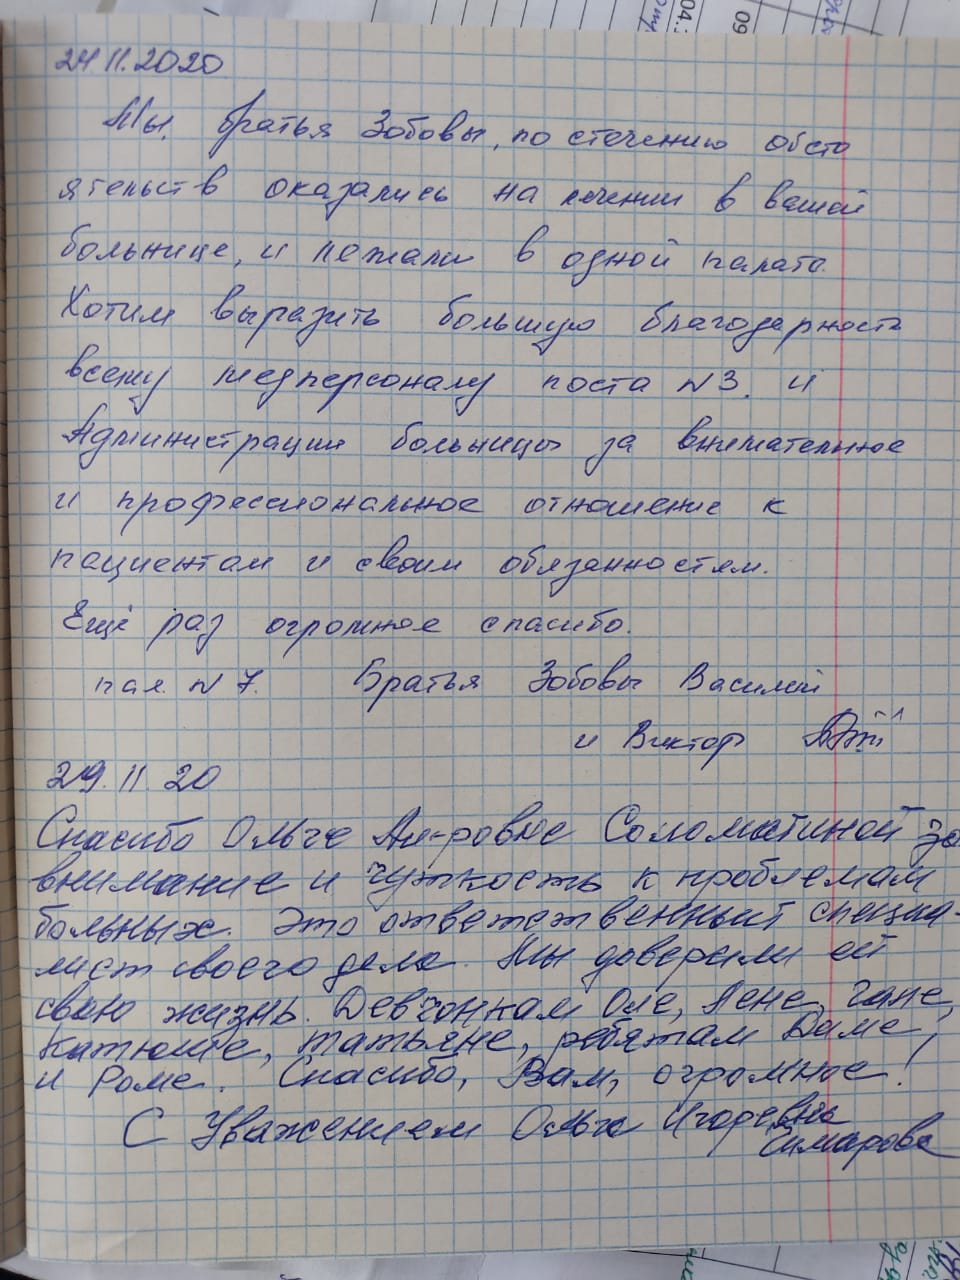 24.11.2020
Мы, братья Зобовы, по стечению обсто
ятельств оказались на лечении в вашей
больнице, и лежали в одной палате.
Хотим выразить большую благодарность
всему медперсоналу поста №3. и
Администрации больницы за внимательное
и профессиональное отношение к
пациентам и своим обязанностям.
Ещё раз огромное спасибо.
пал. №7. Братья Зобовы Василий
и Виктор
29.11.20
Спасибо Ольге Ал-ровне Соломатиной за
внимание и чуткость к проблемам
больных. Это ответственный специа-
лист своего дела. Мы доверили ей
свою жизнь. Девчонкам Оле, Лене, Гале,
Катюше, Татьяне, ребятам Диме
и Роме. Спасибо, Вам, огромное!
С Уважением Ольга Игоревна